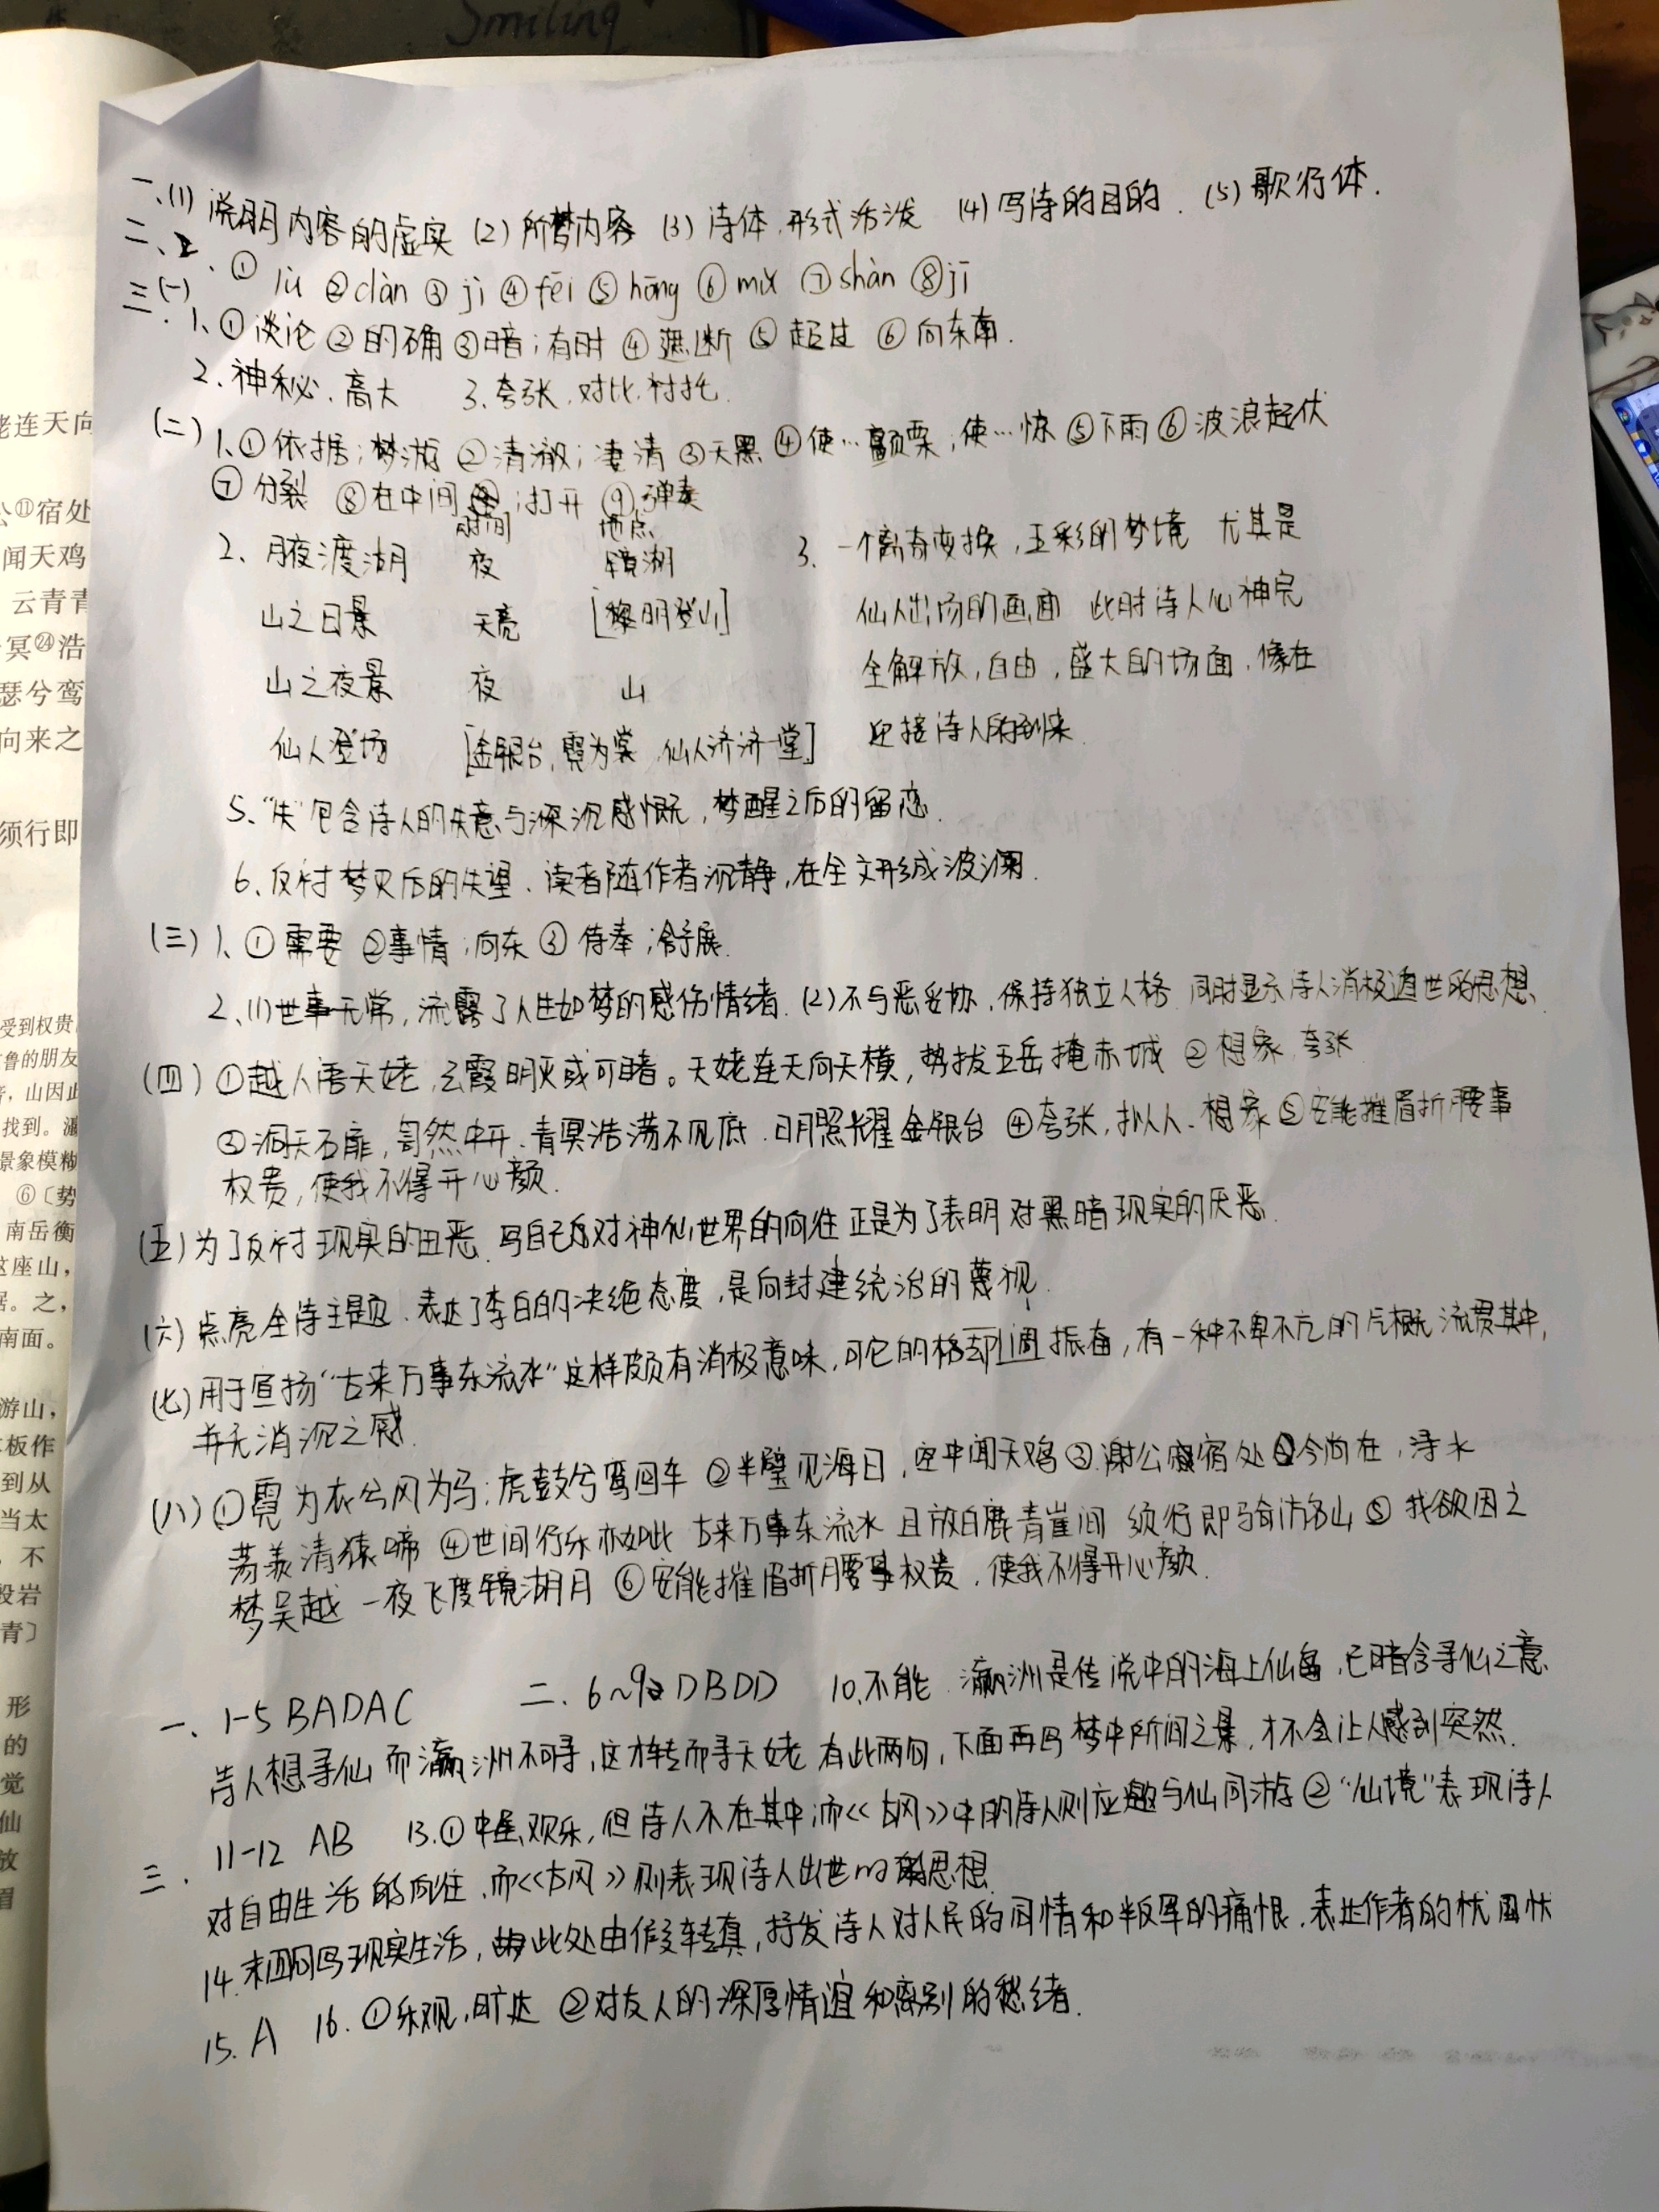 Smiling
一、(1) 说明内容的虚实 (2) 所梦内容 (3) 诗体,形式活泼 (4) 写诗的目的. (5) 歌行体.
二、2. ① lù ② dàn ③ jì ④ fēi ⑤ hōng ⑥ mù ⑦ shàn ⑧ jī
三(一). 1、① 谈论 ② 的确 ③ 暗;有时 ④ 遮断 ⑤ 超过 ⑥ 向东南.
2、神秘、高大 3、夸张.对比.衬托.
(二) 1、① 依据;梦游 ② 清澈;凄清 ③ 天黑 ④ 使…颤栗;使…惊 ⑤ 下雨 ⑥ 波浪起伏
⑦ 分裂 ⑧ 在中间;打开 ⑨ 弹奏
时间 地点
2、月夜渡湖 夜 镜湖 3、一个离奇变换,五彩的梦境 尤其是
山之日景 天亮 [黎明登山] 仙人出场的画面 此时诗人心神完
山之夜景 夜 山 全解放,自由,盛大的场面,像在
仙人登场 [金银台,霓为裳,仙人济济一堂] 迎接诗人的到来
5、“失”包含诗人的失意与深沉感慨,梦醒之后的留恋.
6、反衬梦灭后的失望、读者随作者沉静,在全文形成波澜.
(三) 1、① 需要 ② 事情;向东 ③ 侍奉;舒展.
2、(1) 世事无常,流露了人生如梦的感伤情绪. (2) 不与恶妥协,保持独立人格 同时显示诗人消极遁世的思想.
(四) ① 越人语天姥,云霞明灭或可睹。天姥连天向天横,势拔五岳掩赤城 ② 想象、夸张
③ 洞天石扉,訇然中开.青冥浩荡不见底.日月照耀金银台 ④ 夸张,拟人、想象 ⑤ 安能摧眉折腰事
权贵,使我不得开心颜.
(五) 为了反衬现实的丑恶.写自己对神仙世界的向往正是为了表明对黑暗现实的厌恶.
(六) 点亮全诗主题.表达了李白的决绝态度,是向封建统治的蔑视.
(七) 用于宣扬“古来万事东流水”这样颇有消极意味,可它的格调却振奋,有一种不卑不亢的气概流贯其中,
并无消沉之感.
(八) ① 霓为衣兮风为马;虎鼓兮鸾回车 ② 半壁见海日,空中闻天鸡 ③ 谢公宿处今尚在,渌水
荡漾清猿啼 ④ 世间行乐亦如此 古来万事东流水 且放白鹿青崖间 须行即骑访名山 ⑤ 我欲因之
梦吴越 一夜飞度镜湖月 ⑥ 安能摧眉折腰事权贵,使我不得开心颜.
一、1-5 BADAC 二、6~9 DBDD 10.不能.瀛洲是传说中的海上仙岛,已暗含寻仙之意.
诗人想寻仙而瀛洲不可寻,这才转而寻天姥 有此两句,下面再写梦中所见之景,才不会让人感到突然.
三. 11-12 AB 13.① 欢乐,但诗人不在其中,而《古风》中的诗人则应邀与仙同游 ② “仙境”表现诗人
对自由生活的向往.而《古风》则表现诗人出世的思想.
14.末四句写现实生活,由此处由假转真,抒发诗人对人民的同情和叛军的痛恨.表达作者的忧国忧
15. A 16. ① 乐观,旷达 ② 对友人的深厚情谊和离别的愁绪.
姥连天向
⑪宿处
闻天鸡
云青青
冥㉔浩
瑟兮鸾
向来之
须行即
受到权贵
鲁的朋友
,山因此
找到。瀛
景象模糊
⑥〔势
南岳衡
这座山,
。之,
南面。
游山,
板作
到从
当太
。不
般岩
青〕
形
的
觉
仙
放
眉